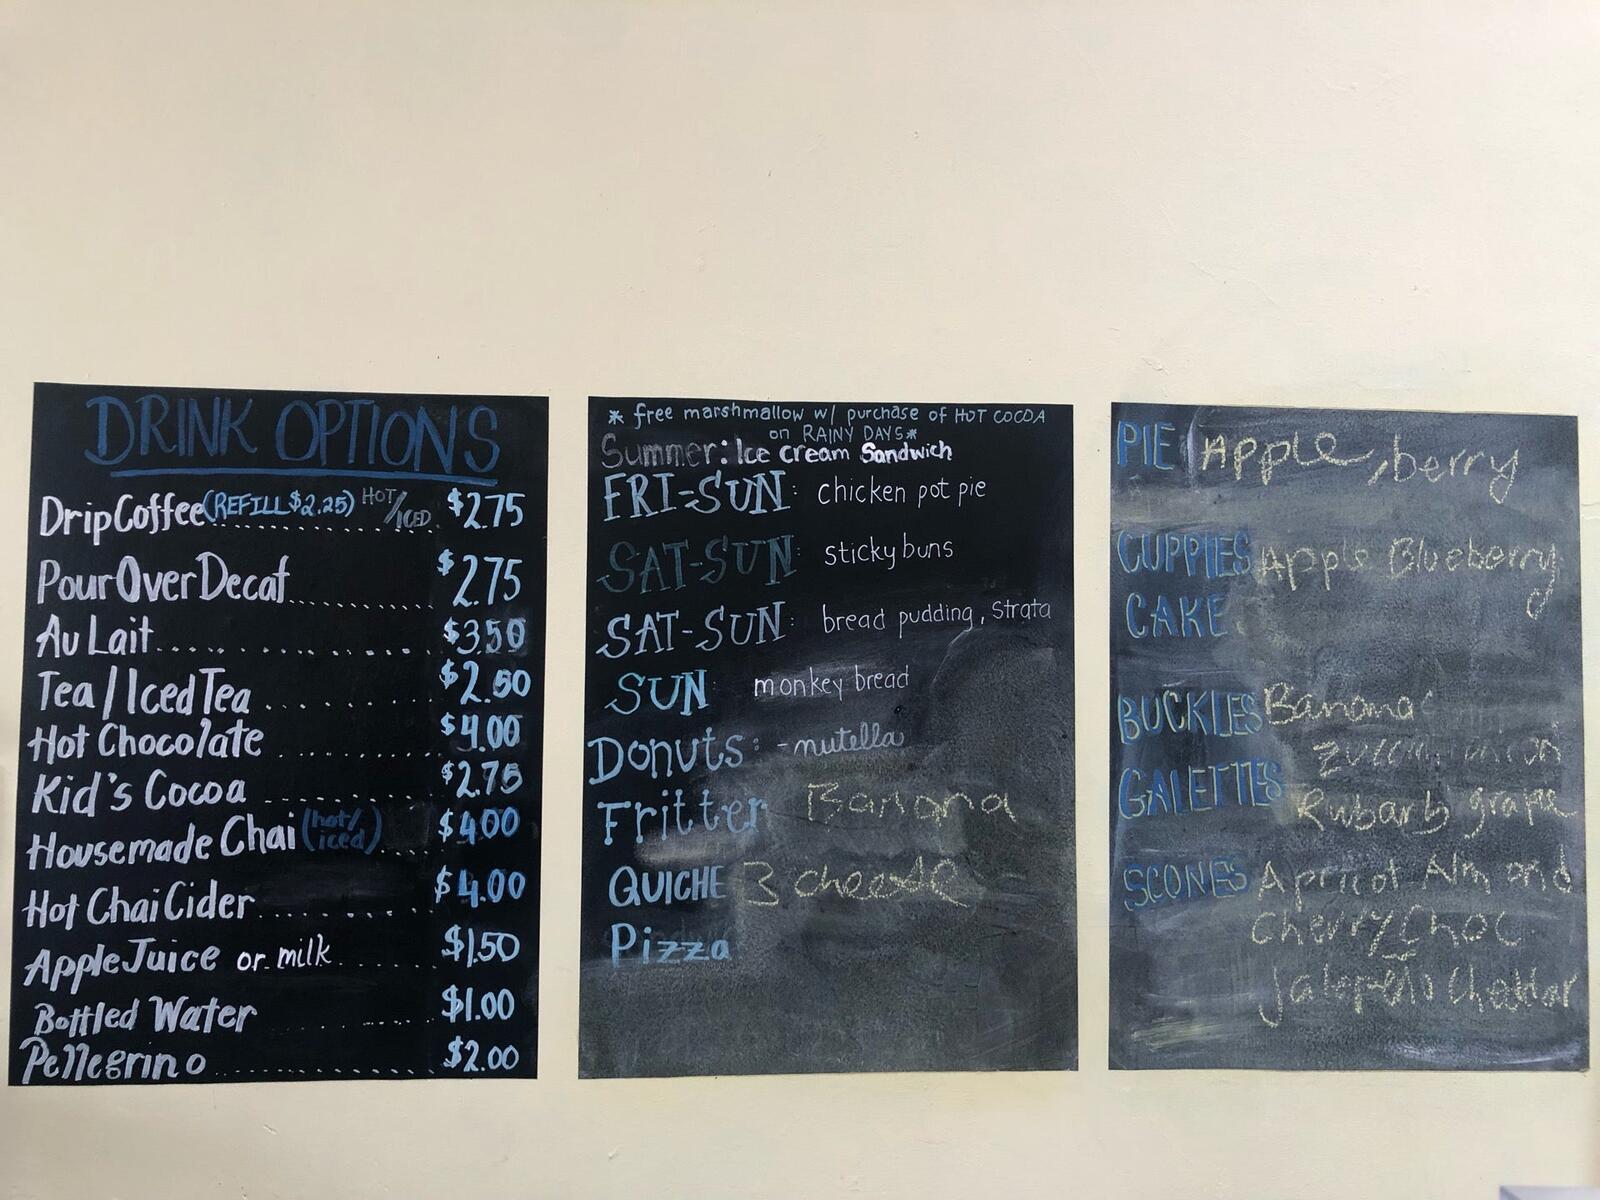 DRINK OPTIONS
Drip Coffee (REFILL $2.25) HOT/ICED $2.75
Pour Over Decaf $2.75
Au Lait $3.50
Tea / Iced Tea $2.50
Hot Chocolate $4.00
Kid's Cocoa $2.75
Housemade Chai (hot/iced) $4.00
Hot Chai Cider $4.00
Apple Juice or milk $1.50
Bottled Water $1.00
Pellegrino $2.00
* free marshmallow w/ purchase of HOT COCOA
on RAINY DAYS *
Summer: Ice cream Sandwich
FRI-SUN: chicken pot pie
SAT-SUN: sticky buns
SAT-SUN: bread pudding, strata
SUN monkey bread
Donuts: - nutella
Fritter Banana
QUICHE 3 cheese
Pizza
PIE Apple, berry
CUPPIES Apple Blueberry
CAKE
BUCKLES Banana
GALETTES Rubarb grape
SCONES Apricot Almond
Cherry Choc